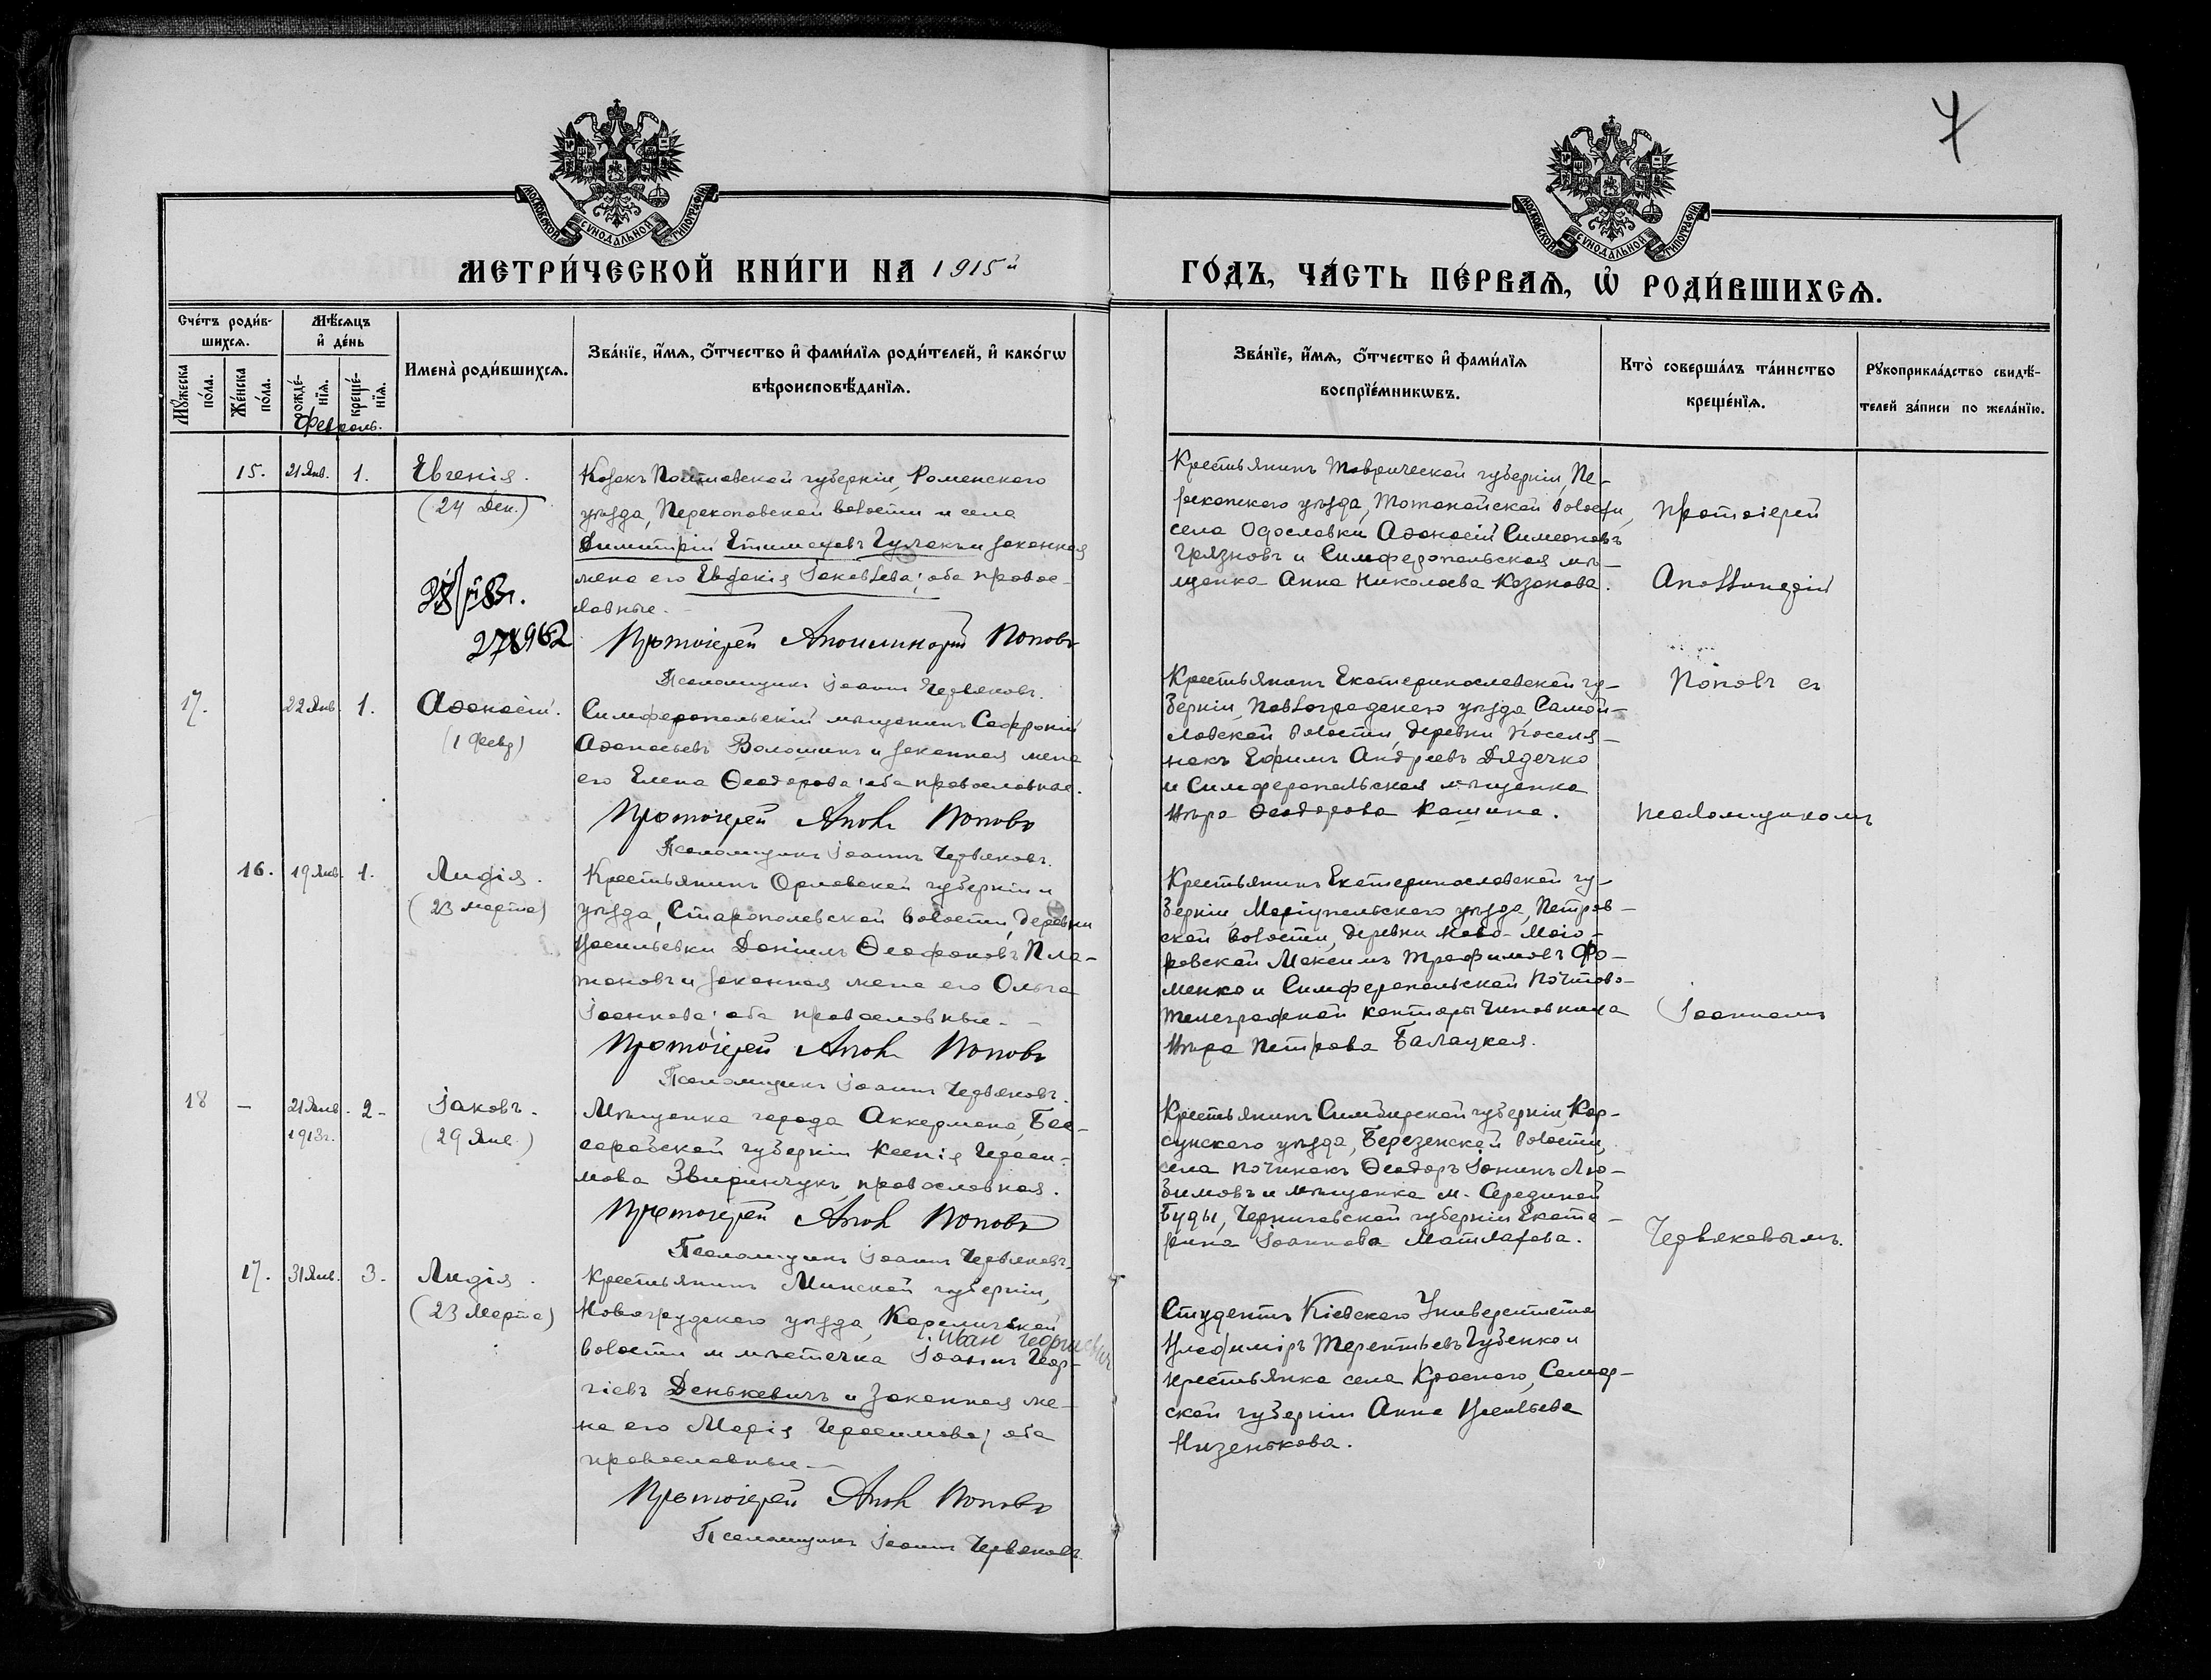 7
МОСКОВСКОЙ СѴНОДАЛЬНОЙ ТИПОГРАФІИ
МОСКОВСКОЙ СѴНОДАЛЬНОЙ ТИПОГРАФІИ
МЕТРИ́ЧЕСКОЙ КНИ́ГИ НА 1915й
ГО́ДЪ, ЧА́СТЬ ПЕ́РВАѦ, Ѡ҆ РОДИ́ВШИХСѦ.
Сче́тъ роди́в-
шихсѧ.
Мꙋ́жеска по́ла.
Же́нска по́ла.
Мѣ́сѧцъ
и҆ де́нь
рожде́-
нїѧ.
креще́-
нїѧ.
Февраль.
Имена̀ роди́вшихсѧ.
Зва́нїе, и҆́мѧ, ѻ҆́тчество и҆ фами́лїѧ роди́телей, и҆ како́гѡ
вѣроисповѣ́данїѧ.
Зва́нїе, и҆́мѧ, ѻ҆́тчество и҆ фами́лїѧ
воспрїе́мникѡвъ.
Кто̀ соверша́лъ та́инство
креще́нїѧ.
Рꙋкоприкла́дство свидѣ́-
телей за́писи по жела́нїю.
15. 21 Янв. 1. Евгенія.
(24 Дек.)
Козакъ Полтавской губерніи, Роменскаго
уѣзда, Перекоповской волости и села
Димитрій Гулакъ и законная
жена его Евдокія Іаковлева; оба право-
славные.
Протоіерей Аполлинарій Поповъ
Псаломщикъ Іоаннъ Червяковъ.
Крестьянинъ Таврической губерніи, Пе-
рекопскаго уѣзда, волости,
села Аѳанасій Симеоновъ
Грязновъ и Симферопольская мѣ-
щанка Анна Николаева Казакова.
Протоіерей
Аполлинарій
Поповъ съ
псаломщикомъ
Іоанномъ
Червяковымъ.
17. 22 Янв. 1. Аѳанасій.
(1 Февр.)
Симферопольскій мѣщанинъ Софроній
Аѳанасьевъ Волошинъ и законная жена
его Елена Ѳеодорова; оба православные.
Протоіерей Апол. Поповъ
Псаломщикъ Іоаннъ Червяковъ.
Крестьянинъ Екатеринославской гу-
берніи, Павлоградскаго уѣзда, Самой-
ловской волости, деревни
Ефимъ Андреевъ Дядечко
и Симферопольская мѣщанка
Вѣра Ѳеодорова Кашина.
16. 19 Янв. 1. Лидія.
(23 Марта)
Крестьянинъ Орловской губерніи и
уѣзда, волости, деревни
Васильевки Даніилъ Ѳеофановъ Пла-
тоновъ и законная жена его Ольга
Іоаннова; оба православные.
Протоіерей Апол. Поповъ
Псаломщикъ Іоаннъ Червяковъ.
Крестьянинъ Екатеринославской гу-
берніи Маріупольскаго уѣзда, Петров-
ской волости, деревни Ново-Маіо-
ровской Максимъ Трофимовъ Фо-
менко и Симферопольской Почтово-
телеграфной конторы чиновница
Вѣра Петрова Балацкая.
18 — 21 Янв. 1913г. 2 Іаковъ.
(29 Янв.)
Мѣщанка города Аккермана, Бес-
сарабской губерніи Ксенія Гераси-
мова Звиринчукъ, православная.
Протоіерей Апол Поповъ
Псаломщикъ Іоаннъ Червяковъ
Крестьянинъ Симбирской губерніи, Кар-
сунскаго уѣзда, Березенской волости,
села Починокъ Ѳеодоръ Іонинъ Лю-
бимовъ и мѣщанка м. Середина
Буды, Черниговской губерніи Екате-
рина Іоаннова
17. 31 Янв. 3. Лидія.
(23 Марта)
Крестьянинъ Минской губерніи,
Новогрудскаго уѣзда, Кореличской
Иван Георгиевич
волости и мѣстечка Іоаннъ Геор-
гіевъ Денькевичъ и законная же-
на его Марія Герасимова; оба
православные.
Протоіерей Апол Поповъ
Псаломщикъ Іоаннъ Червяковъ
Студентъ Кіевскаго Университета
Владиміръ Терентьевъ Губенко и
крестьянка села Краснаго, Самар-
ской губерніи Анна Васильева
Низенькова.